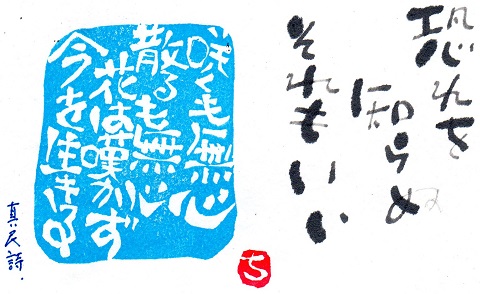 恐れを
知らぬ
それもいい
咲くも無心
散るも無心
花は嘆かず
今を生きる
真民詩.
ち